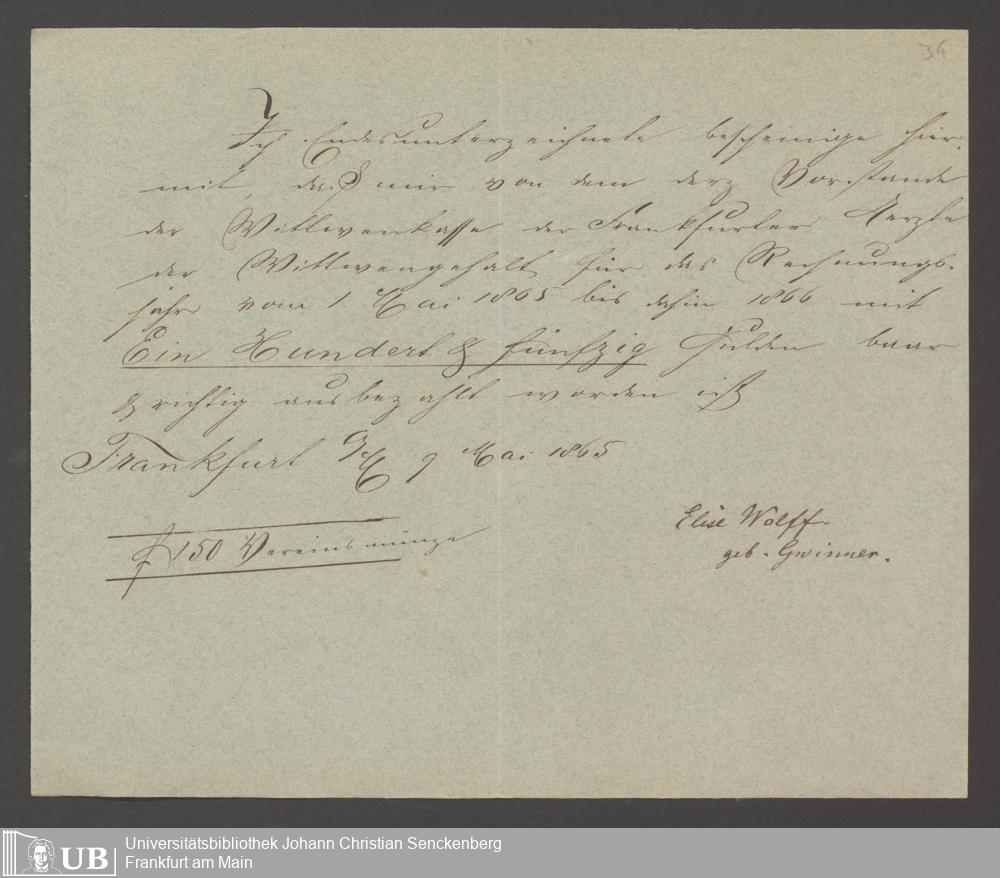 34
Ich Endesunterzeichnete bescheinige hier-
mit, daß mir von dem derz Vorstande
der Wittwenkasse der Frankfurter Aerzte
der Wittwengehalt für das Rechnungs-
jahr vom 1 Mai 1865 bis dahin 1866 mit
Ein Hundert & fünfzig Gulden baar
& richtig ausbezahlt worden ist
Frankfurt a/M 9 Mai 1865
f 150 Vereinsmünze
Elise Wolff.
geb. Gwinner.
UB
Universitätsbibliothek Johann Christian Senckenberg
Frankfurt am Main